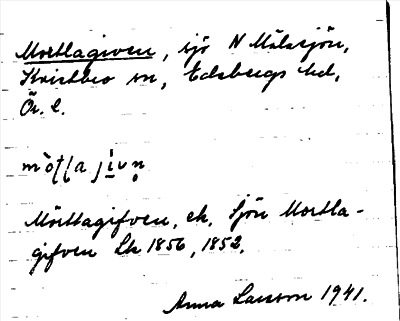 Mortlagiven, sjö N Mälsjön,
Kvistbro sn, Edsbergs hd,
Ör. l.
Mörttagifven, ek, Sjön Mortla-
gifven Lk 1856, 1852.
Anna Larsson 1941.